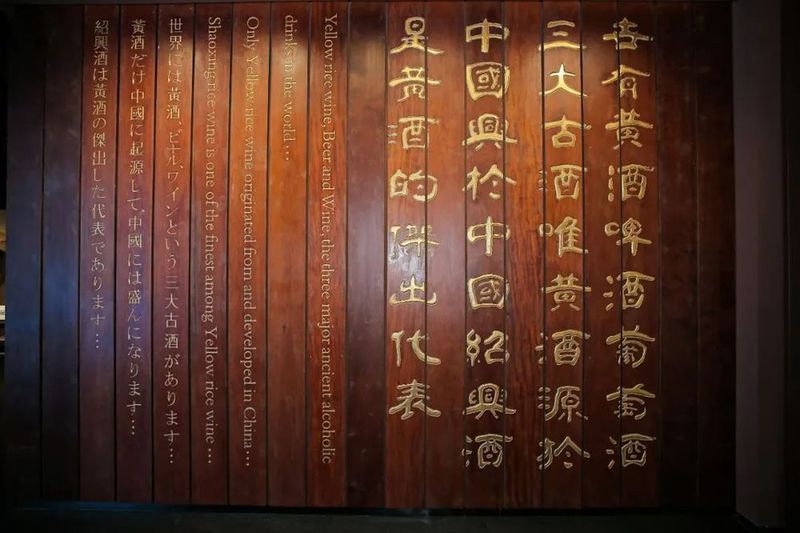 世有黄酒啤酒葡萄酒
三大古酒唯黄酒源於
中國興於中國紹興酒
是黄酒的傑出代表
Yellow rice wine, Beer and Wine, the three major ancient alcoholic
drinks in the world …
Only Yellow rice wine originated from and developed in China…
Shaoxing rice wine is one of the finest among Yellow rice wine …
世界には黃酒、ビール、ワインという三大古酒があります…
黃酒だけ中國に起源して、中國には盛んになります…
紹興酒は黃酒の傑出した代表であります…